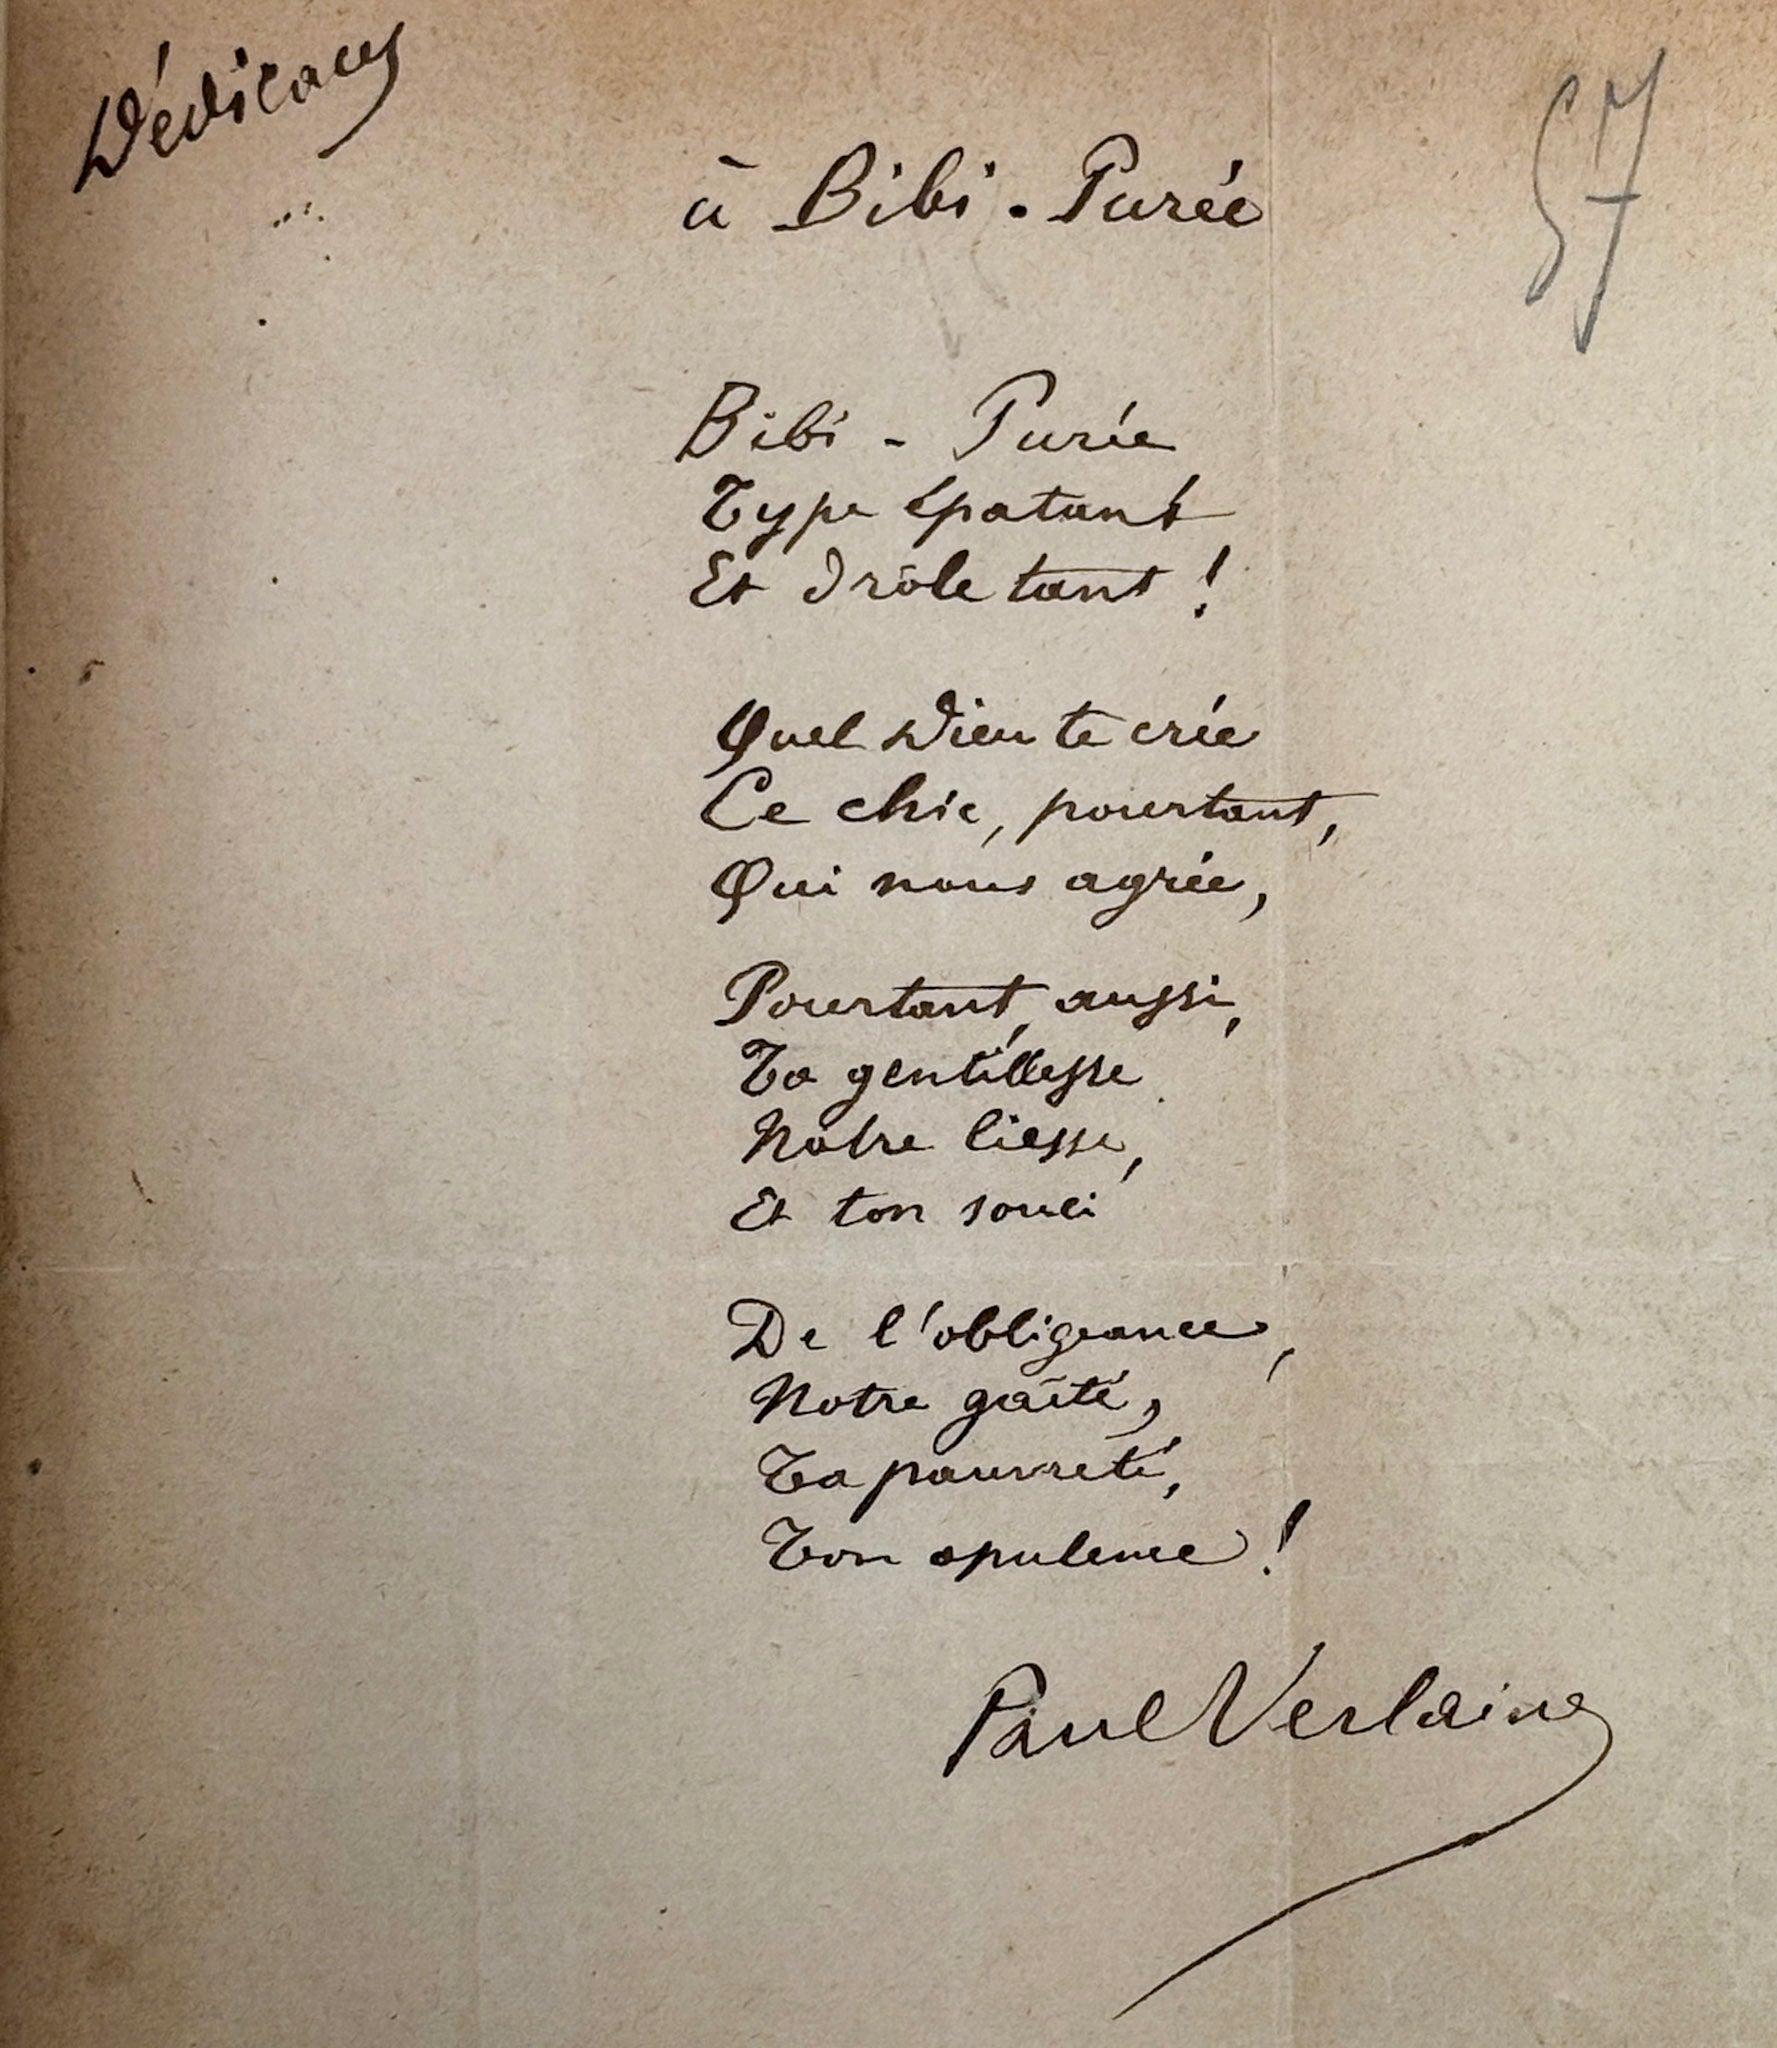 Dédicaces
57
à Bibi-Purée
Bibi - Purée
Type épatant
Et drôle tant !
Quel Dieu te crée
Ce chic, pourtant,
Qui nous agrée,
Pourtant, aussi,
Ta gentillesse
Notre liesse,
Et ton souci
De l'obligeance,
Notre gaîté,
Ta pauvreté,
Ton opulence !
Paul Verlaine